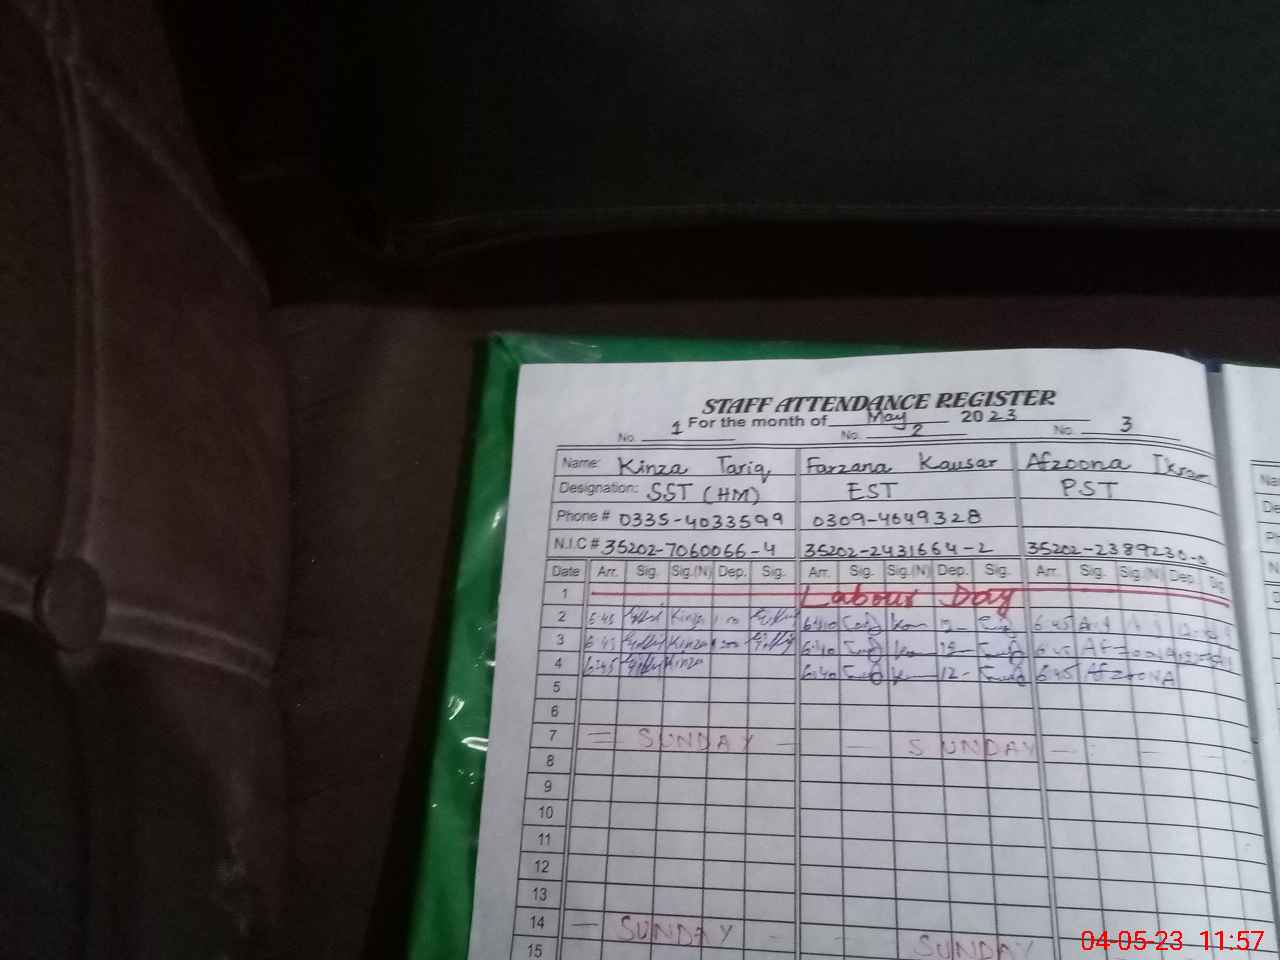 STAFF ATTENDANCE REGISTER
For the month of May 2023
No. 1 No. 2 No. 3
Name: Kinza Tariq Farzana Kausar Afzoona Ikram
Designation: SST (HM) EST PST
Phone # 0335-4033599 0309-4649328
N.I.C # 35202-7060066-4 35202-2431664-2 35202-2389230-0
Date Arr. Sig. Sig.(N) Dep. Sig. Arr. Sig. Sig.(N) Dep. Sig. Arr. Sig. Sig.(N) Dep. Sig.
1 Labour Day
2 6:45 Kinza 6:40 12- 6:45
3 6:45 Kinza 6:40 12- 6:45
4 6:45 Kinza 6:40 12- 6:45 AfzoonA
5
6
7 = SUNDAY - - SUNDAY -
8
9
10
11
12
13
14 - SUNDAY - - SUNDAY
15
04-05-23 11:57